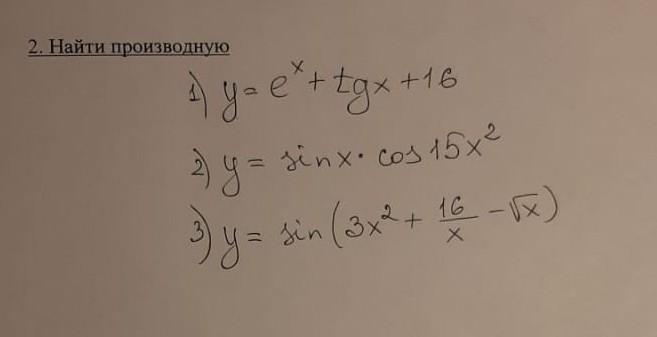 2. Найти производную
1) y = e^x + tgx + 16
2) y = sinx · cos15x²
3) y = sin(3x² + 16/x - √x)